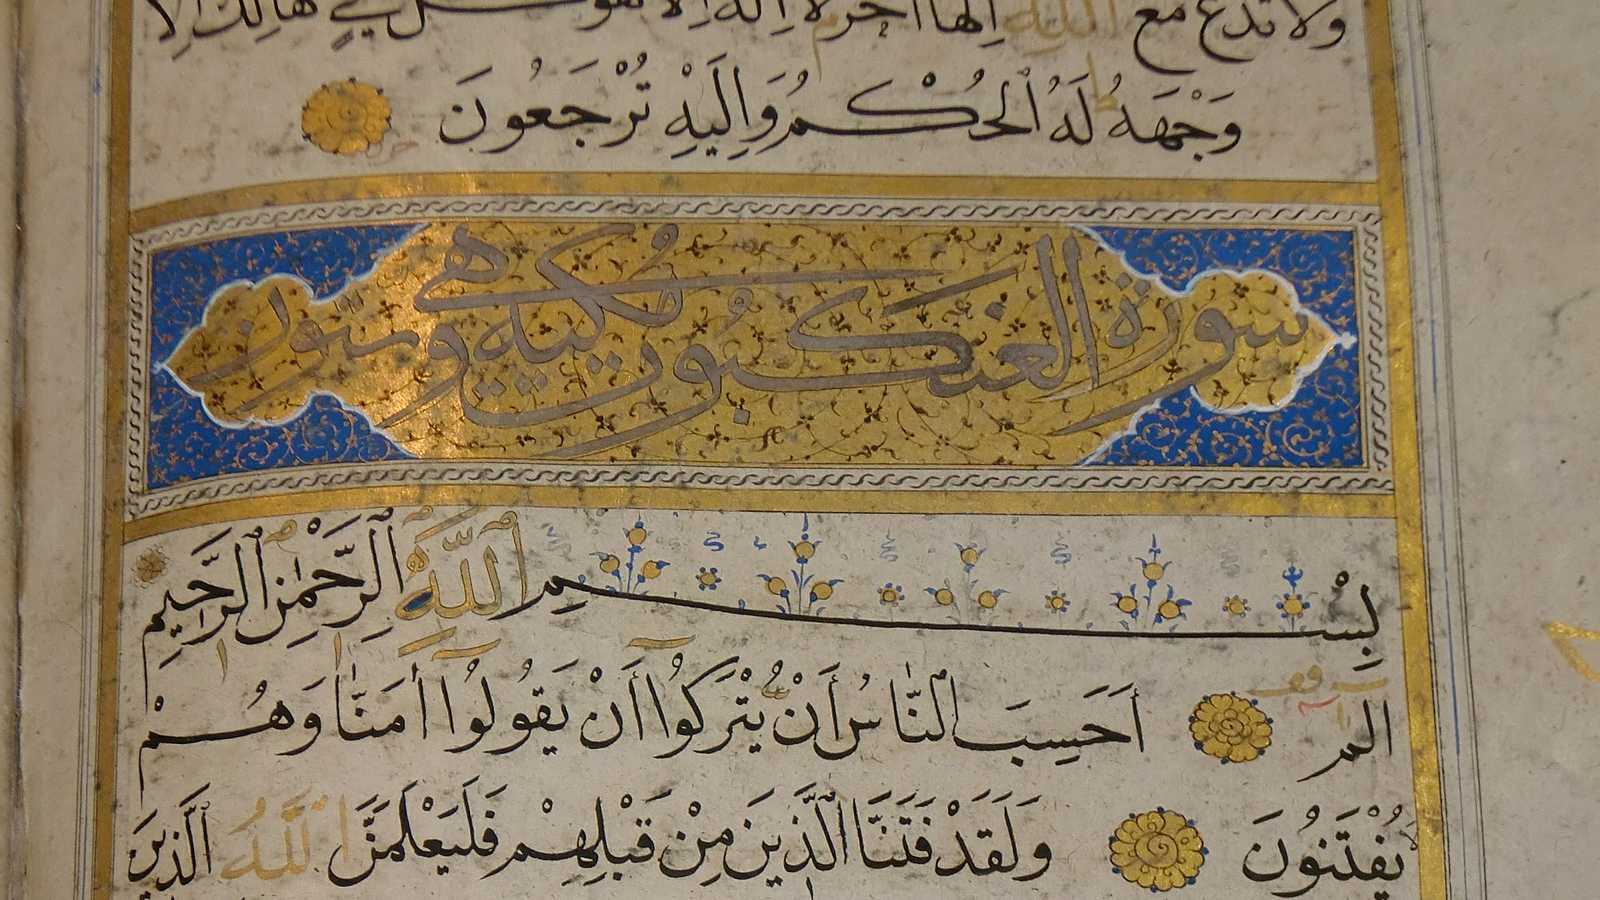 ولا تدع مع الله الها اخر لا اله الا هو كل شيء هالك الا
وَجْهَهُ لَهُ الْحُكْمُ وَاِلَيْهِ تُرْجَعُونَ
سورة العنكبوت مكية وهى ستون
بِسْمِ اللّٰهِ الرَّحْمٰنِ الرَّحِيمِ
الم اَحَسِبَ النَّاسُ أَنْ يُتْرَكُوا أَنْ يَقُولُوا اٰمَنَّا وَهُمْ
يُفْتَنُونَ وَلَقَدْ فَتَنَّا الَّذِينَ مِنْ قَبْلِهِمْ فَلَيَعْلَمَنَّ اللّٰهُ الَّذِينَ